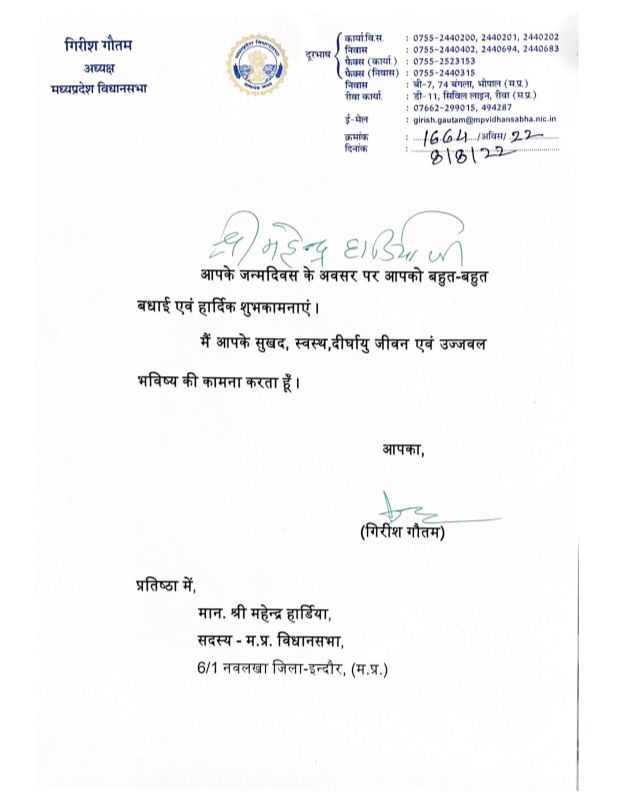 गिरीश गौतम
अध्यक्ष
मध्यप्रदेश विधानसभा
दूरभाष
कार्या.वि.स. : 0755-2440200, 2440201, 2440202
निवास : 0755-2440402, 2440694, 2440683
फैक्स (कार्या.) : 0755-2523153
फैक्स (निवास) : 0755-2440315
निवास : बी-7, 74 बंगला, भोपाल (म.प्र.)
रीवा कार्या. : डी-11, सिविल लाइन, रीवा (म.प्र.)
: 07662-299015, 494287
ई-मेल : girish.gautam@mpvidhansabha.nic.in
क्रमांक : 1664 /अविस/ 22
दिनांक : 8/8/22
श्री महेन्द्र हार्डिया जी
आपके जन्मदिवस के अवसर पर आपको बहुत-बहुत
बधाई एवं हार्दिक शुभकामनाएं ।
मैं आपके सुखद, स्वस्थ,दीर्घायु जीवन एवं उज्जवल
भविष्य की कामना करता हूँ ।
आपका,
(गिरीश गौतम)
प्रतिष्ठा में,
मान. श्री महेन्द्र हार्डिया,
सदस्य - म.प्र. विधानसभा,
6/1 नवलखा जिला-इन्दौर, (म.प्र.)